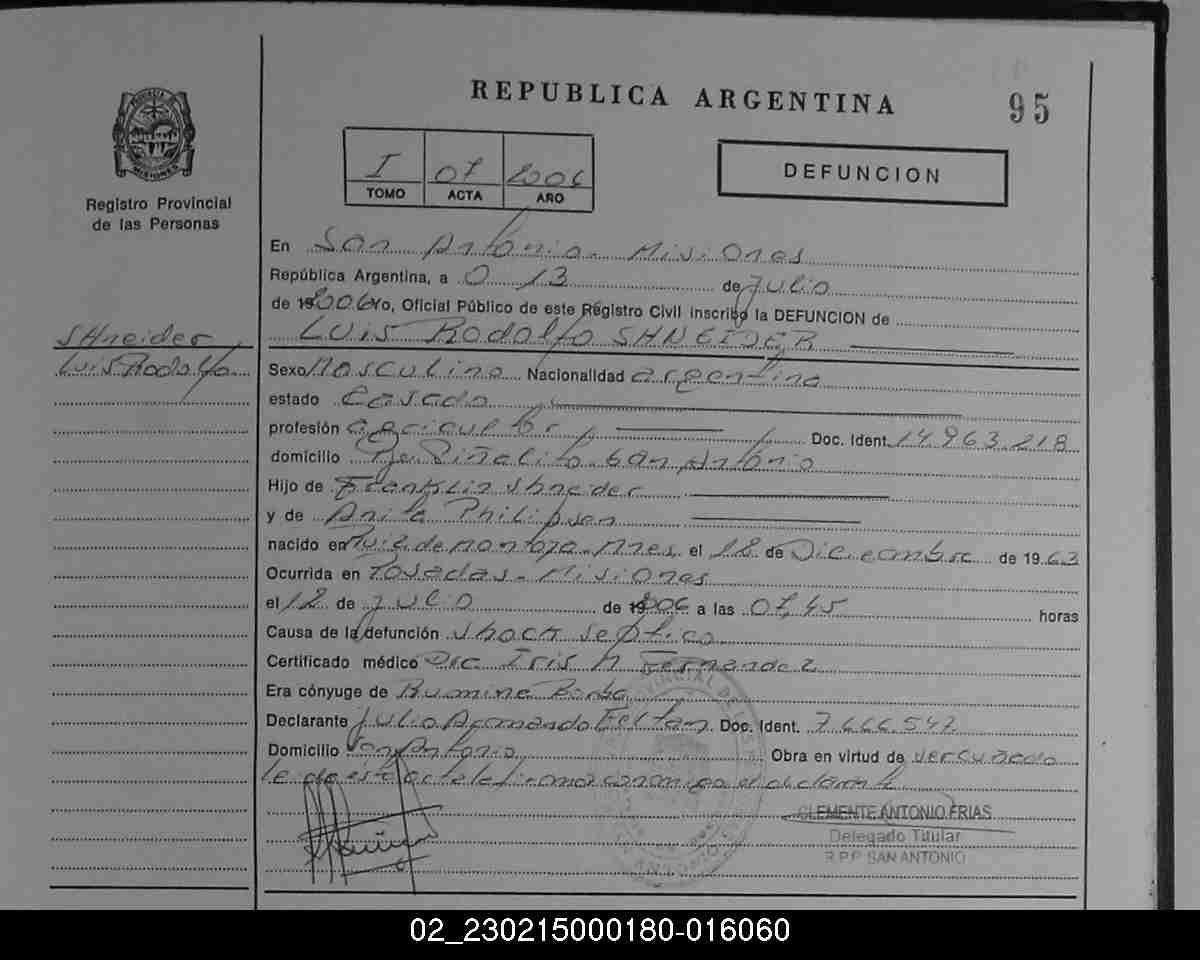 REPUBLICA ARGENTINA
95
I 07 2006
TOMO ACTA AÑO
DEFUNCION
Registro Provincial
de las Personas
En San Antonio. Misiones
República Argentina, a 13 de Julio
de 2006 Yo, Oficial Público de este Registro Civil inscribo la DEFUNCION de
LUIS RODOLFO SHNEIDER
SHneider
Luis Rodolfo
Sexo Masculino Nacionalidad argentina
estado Casado
profesión agricultor Doc. Ident. 14.963.218
domicilio Piñalito. San Antonio
Hijo de Franklin Shneider
y de Anita Philipsen
nacido en Ruiz de Montoya. Mnes. el 18 de Diciembre de 1963
Ocurrida en Posadas. Misiones
el 12 de Julio de 2006 a las 07,45 horas
Causa de la defunción Shock septico
Certificado médico Dra. Iris M Fernandez
Era cónyuge de
Declarante Julio Armando Doc. Ident. 7.666.547
Domicilio San Antonio Obra en virtud de
el declarante
CLEMENTE ANTONIO FRIAS
Delegado Titular
R.P.P. SAN ANTONIO
02_230215000180-016060